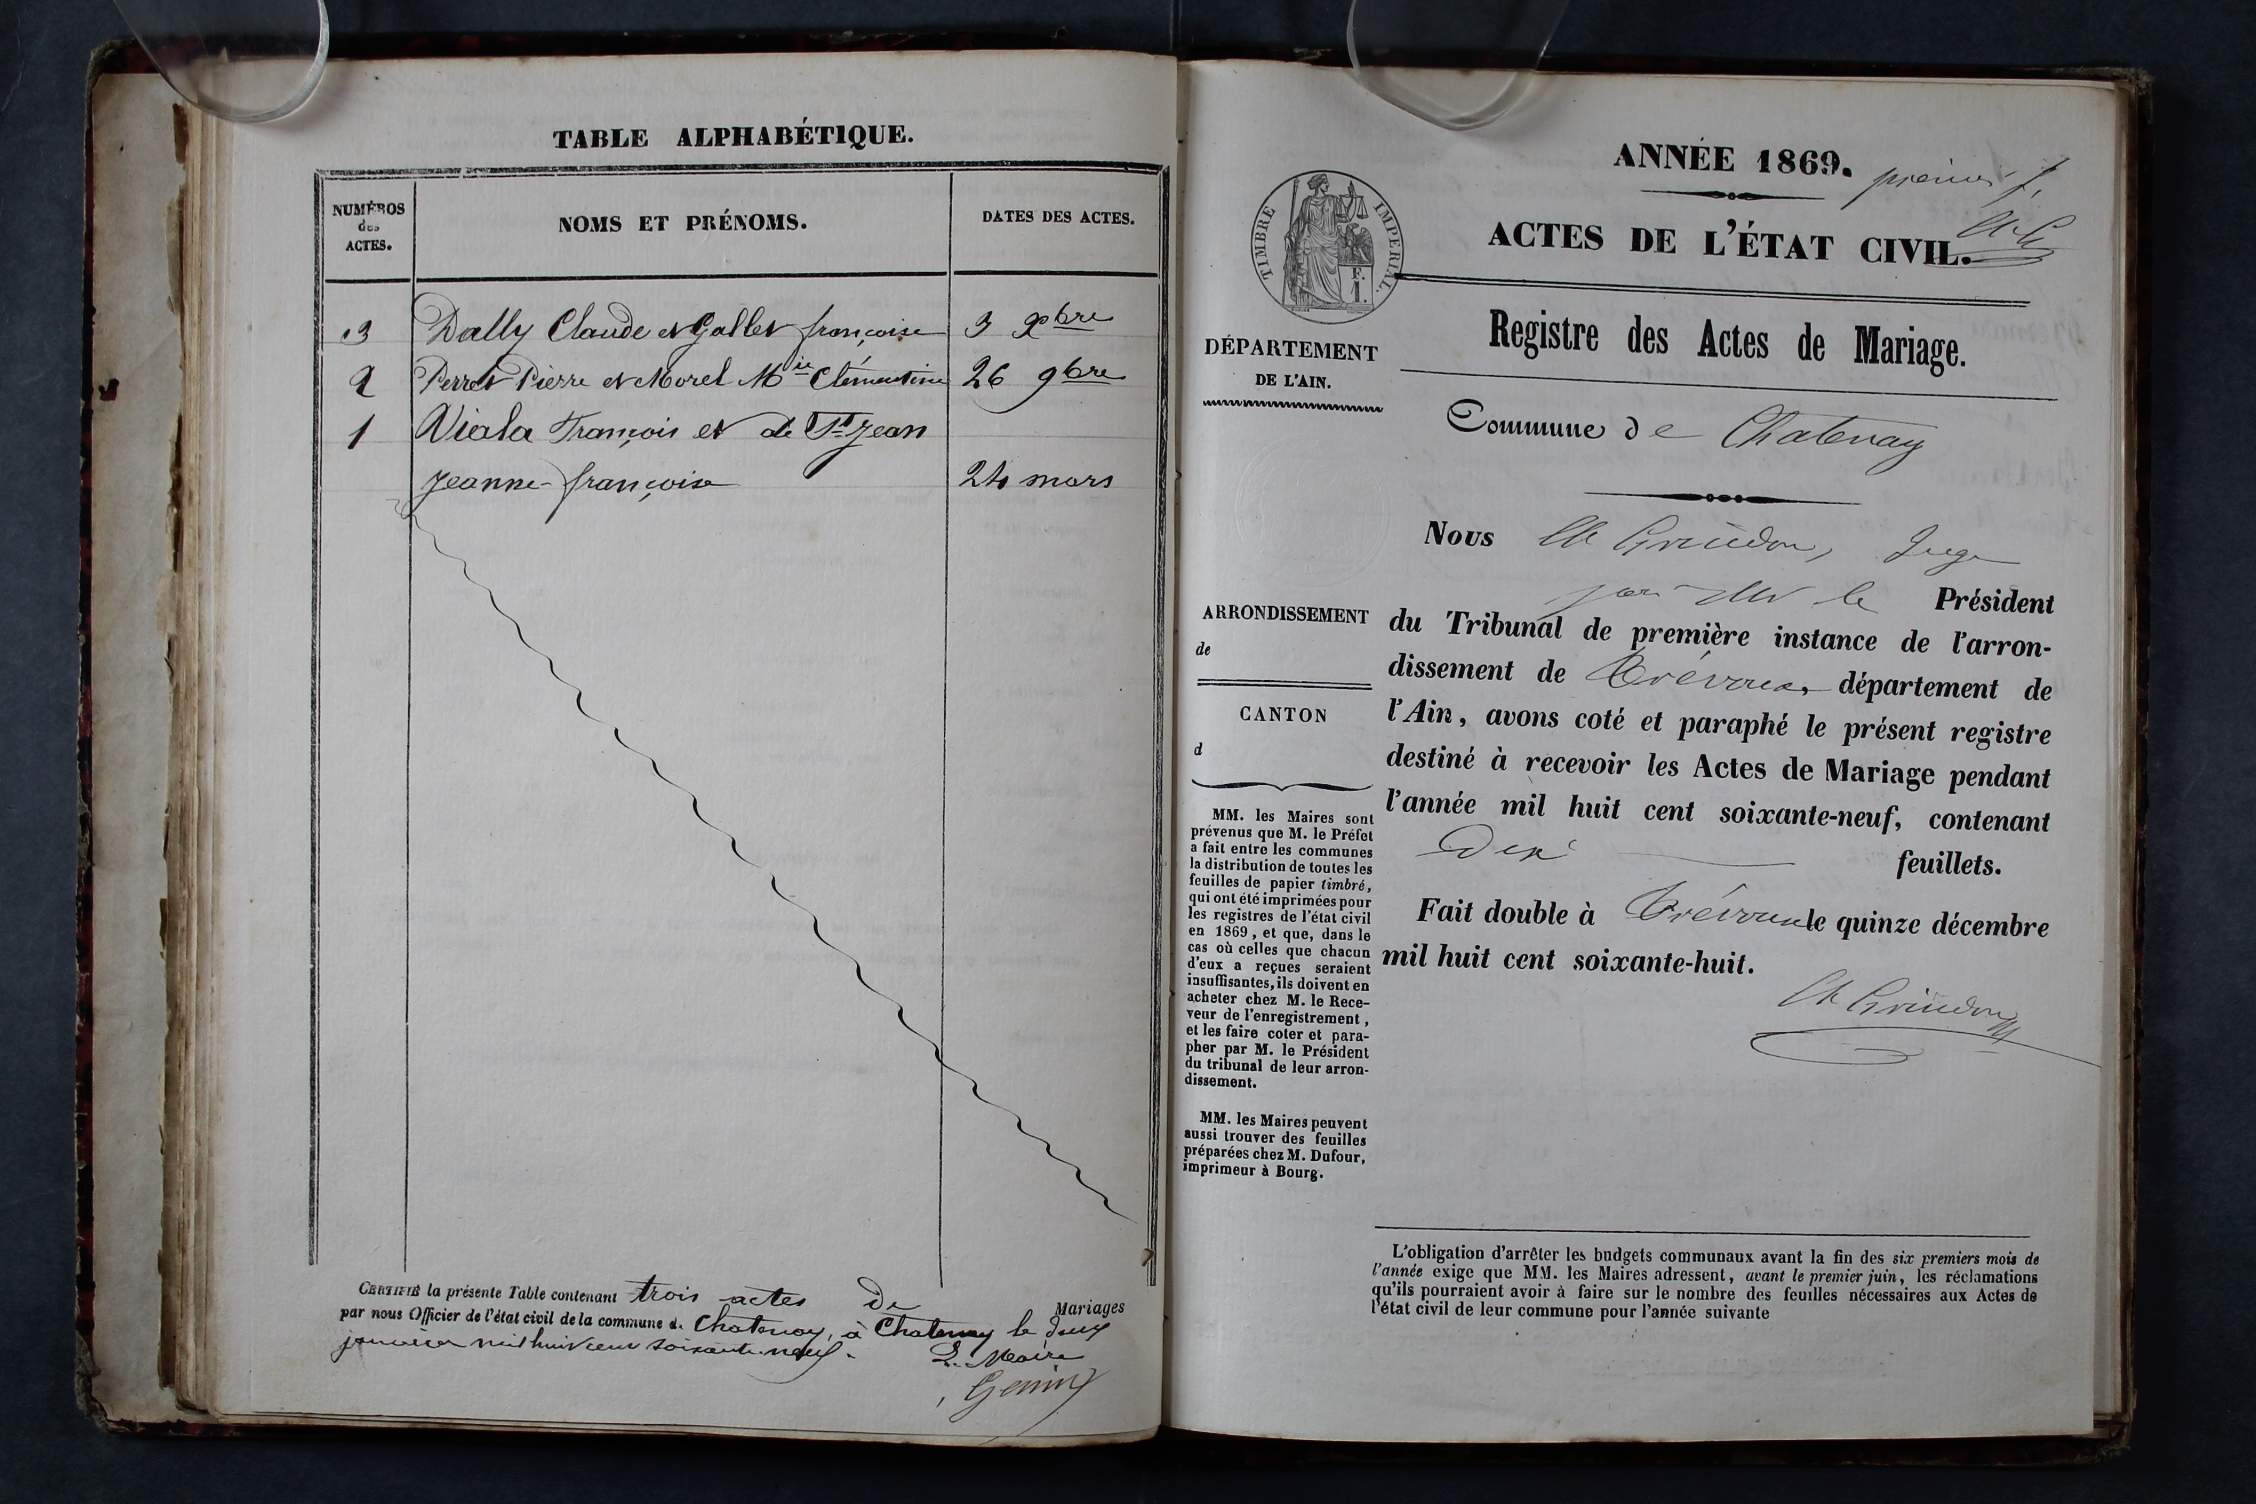 TABLE ALPHABÉTIQUE.
NUMÉROS
des
ACTES.
NOMS ET PRÉNOMS.
DATES DES ACTES.
3 Dally Claude et Gallet françoise 3 Xbre
2 Perret Pierre et Morel Mie Clémentine 26 9bre
1 Viala François et de St Jean
Jeanne-françoise 24 mars
CERTIFIÉ la présente Table contenant trois actes de Mariages
par nous Officier de l'état civil de la commune de Chatenay, à Chatenay le deux
janvier mil huit cent soixante-neuf.
Le Maire
ANNÉE 1869.
premier f.
ACTES DE L'ÉTAT CIVIL.
TIMBRE IMPERIAL.
F.
1.
Registre des Actes de Mariage.
DÉPARTEMENT
DE L'AIN.
Commune de Chatenay
Nous Juge
pour Mr le Président
du Tribunal de première instance de l'arron-
dissement de Trévoux, département de
l'Ain, avons coté et paraphé le présent registre
destiné à recevoir les Actes de Mariage pendant
l'année mil huit cent soixante-neuf, contenant
Dix feuillets.
Fait double à Trévoux le quinze décembre
mil huit cent soixante-huit.
ARRONDISSEMENT
de
CANTON
d
MM. les Maires sont
prévenus que M. le Préfet
a fait entre les communes
la distribution de toutes les
feuilles de papier timbré,
qui ont été imprimées pour
les registres de l'état civil
en 1869, et que, dans le
cas où celles que chacun
d'eux a reçues seraient
insuffisantes, ils doivent en
acheter chez M. le Rece-
veur de l'enregistrement,
et les faire coter et para-
pher par M. le Président
du tribunal de leur arron-
dissement.
MM. les Maires peuvent
aussi trouver des feuilles
préparées chez M. Dufour,
imprimeur à Bourg.
L'obligation d'arrêter les budgets communaux avant la fin des six premiers mois de
l'année exige que MM. les Maires adressent, avant le premier juin, les réclamations
qu'ils pourraient avoir à faire sur le nombre des feuilles nécessaires aux Actes de
l'état civil de leur commune pour l'année suivante